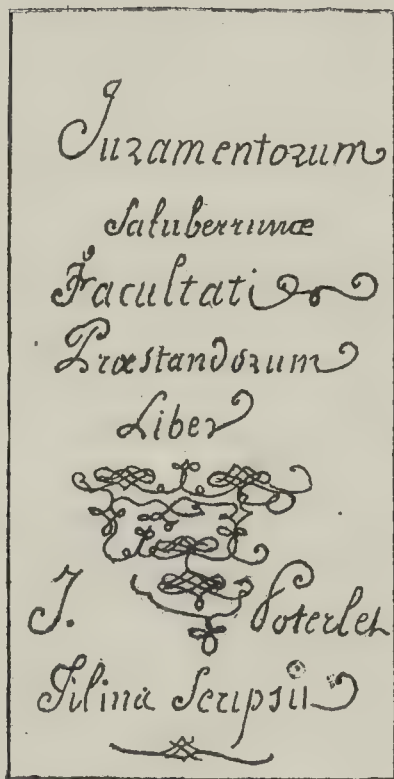 Juramentorum
Saluberrimæ
Facultati
Præstandorum
Liber
J. Poterlet
Filina Scripsit